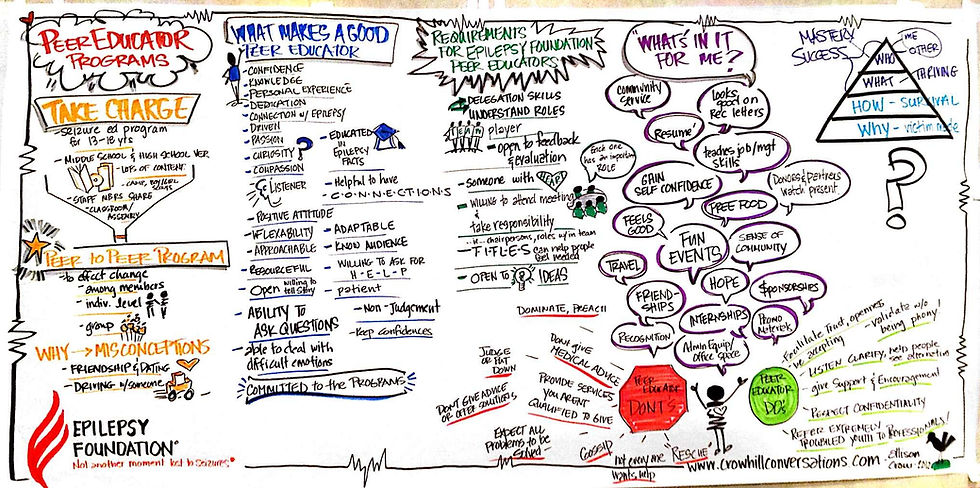 PEER EDUCATOR
PROGRAMS
TAKE CHARGE
seizure ed program
for 13-18 yrs
- MIDDLE SCHOOL & HIGH SCHOOL VER.
- LOTS OF CONTENT
- CAMP, BOY/GIRL
- STAFF MBRS SHARE
- CLASSROOM/
ASSEMBLY
PEER to PEER PROGRAM
to effect change
- among members
- indiv. level
- group
WHY → MISCONCEPTIONS
- FRIENDSHIP & DATING
- DRIVING w/someone
EPILEPSY
FOUNDATION®
Not another moment lost to seizures®
WHAT MAKES A GOOD
PEER EDUCATOR
- CONFIDENCE
- KNOWLEDGE
- PERSONAL EXPERIENCE
- DEDICATION
- CONNECTION w/ EPILEPSY
- DRIVEN
- PASSION
- CURIOSITY
- COMPASSION
- EDUCATED
IN
EPILEPSY
FACTS
LISTENER
- Helpful to have
C-O-N-N-E-C-T-I-O-N-S
- POSITIVE ATTITUDE
- FLEXABILITY
- APPROACHABLE
- RESOURCEFUL
- Open willing to
tell story
- ADAPTABLE
- KNOW AUDIENCE
- WILLING TO ASK FOR
H-E-L-P
- patient
- ABILITY TO
ASK QUESTIONS
- Non-Judgement
- Keep confidences
- able to deal with
difficult emotions
COMMITTED to the PROGRAMS
REQUIREMENTS
FOR EPILEPSY FOUNDATION
PEER EDUCATORS
DELEGATION SKILLS
UNDERSTAND ROLES
TEAM player
- open to feedback
& evaluation
Each one
has an important
ROLE
- someone with HEART
- WILLING to attend meeting
&
take responsibility
chairpersons, roles w/in team
- T-I-T-L-E-S can help people
feel needed
- OPEN TO IDEAS
"WHAT'S IN IT
FOR ME?"
COMMUNITY
SERVICE
looks
good on
Rec letters
RESUME'
teaches job/mgt
skills
GAIN
SELF CONFIDENCE
Donors & partners
watch present.
FREE FOOD
FEELS
GOOD
FUN
EVENTS
SENSE OF
COMMUNITY
TRAVEL
HOPE
$PONSORSHIPS
FRIEND-
SHIPS
INTERNSHIPS
PROMO
Materials
RECOGNITION
Admin Equip/
office space
MASTERY
SUCCESS
ME
OTHER
WHO
WHAT - THRIVING
HOW - SURVIVAL
WHY - victim mode
?
DOMINATE, PREACH
JUDGE
OR PUT
DOWN
DON'T GIVE
MEDICAL ADVICE
DON'T GIVE ADVICE
OR OFFER SOLUTIONS
PROVIDE SERVICES
YOU AREN'T
QUALIFIED TO GIVE
EXPECT ALL
Problems to be
Solved
GOSSIP
not everyone
wants help
RESCUE
PEER
EDUCATOR
DON'TS
PEER
EDUCATOR
DO's
- Facilitate trust, openness
be accepting
- validate w/o
being phony
- LISTEN, CLARIFY, help people
see alternatives
- give Support & Encouragement
- RESPECT CONFIDENTIALITY
- REFER EXTREMELY
TROUBLED YOUTH TO PROFESSIONALS!
www.crowhillconversations.com
- Ellison
Crow